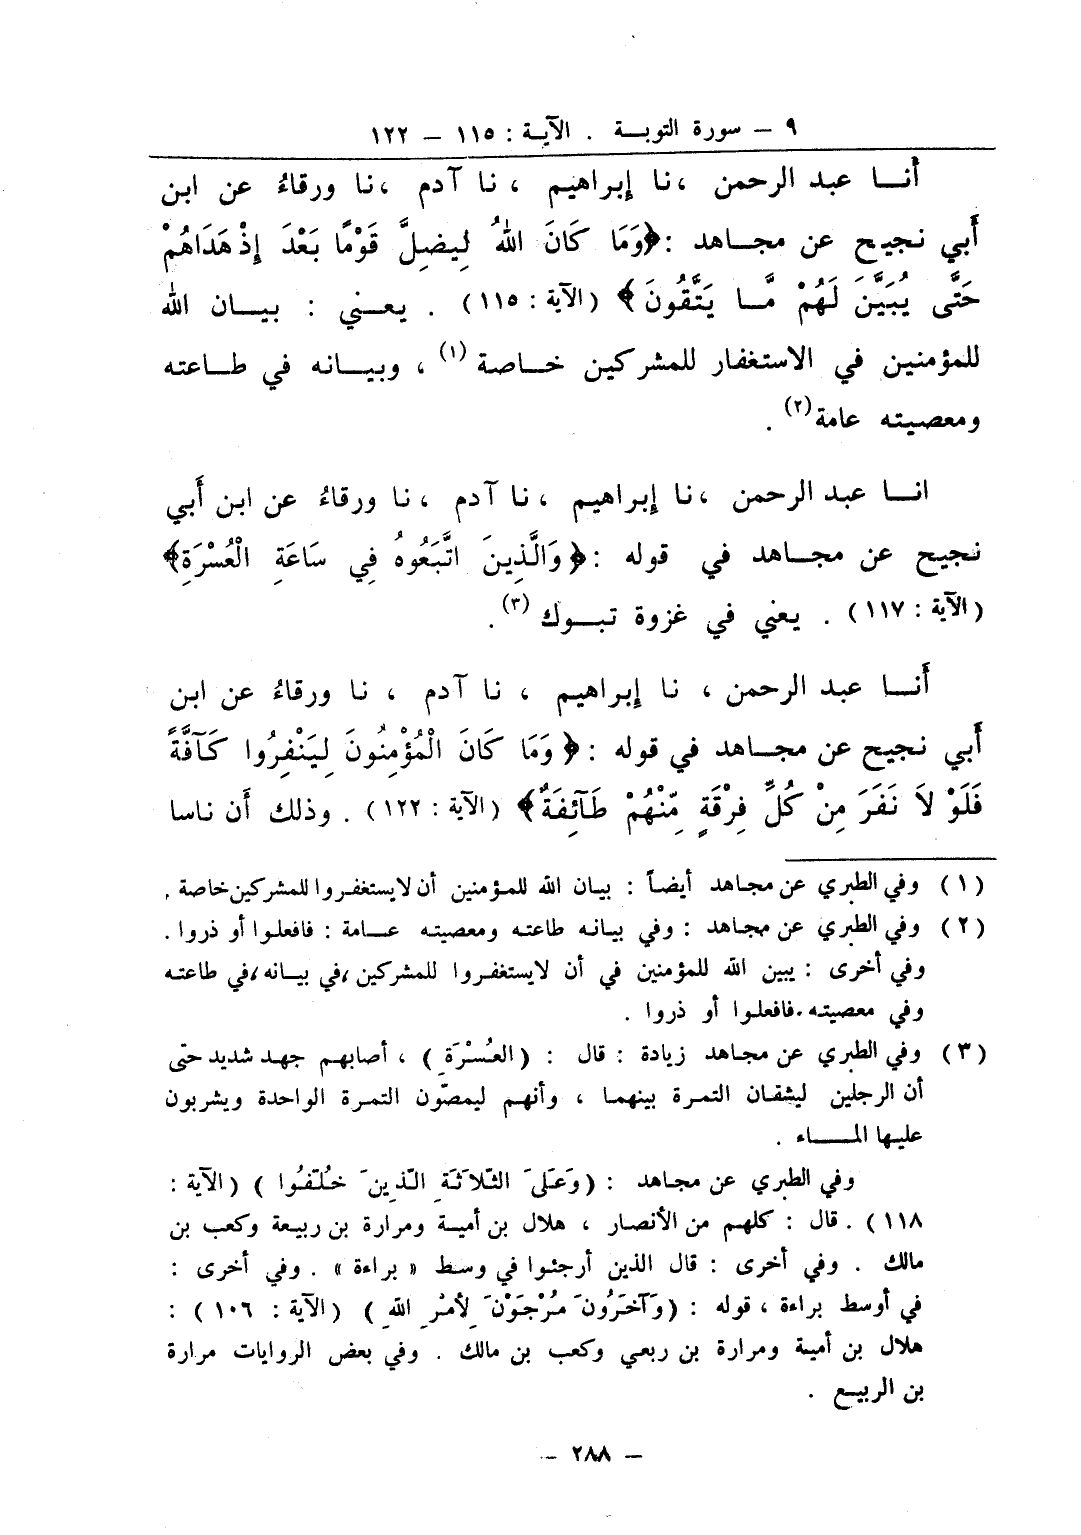 ٩ – سورة التوبة . الآية : ١١٥ – ١٢٢
أنا عبد الرحمن ، نا إبراهيم ، نا آدم ، نا ورقاءُ عن ابن
أبي نجيح عن مجاهد : ﴿وَمَا كَانَ اللهُ لِيضِلَّ قَوْمًا بَعْدَ إِذْ هَدَاهُمْ
حَتَّى يُبَيَّنَ لَهُمْ مَّا يَتَّقُونَ﴾ (الآية : ١١٥) . يعني : بيان الله
للمؤمنين في الاستغفار للمشركين خاصة (١) ، وبيانه في طاعته
ومعصيته عامة (٢) .
انا عبد الرحمن ، نا إبراهيم ، نا آدم ، نا ورقاءُ عن ابن أبي
نجيح عن مجاهد في قوله : ﴿وَالَّذِينَ اتَّبَعُوهُ فِي سَاعَةِ الْعُسْرَةِ﴾
(الآية : ١١٧) . يعني في غزوة تبوك (٣) .
أنا عبد الرحمن ، نا إبراهيم ، نا آدم ، نا ورقاءُ عن ابن
أبي نجيح عن مجاهد في قوله : ﴿وَمَا كَانَ الْمُؤْمِنُونَ لِيَنْفِرُوا كَآفَّةً
فَلَوْ لاَ نَفَرَ مِنْ كُلِّ فِرْقَةٍ مِّنْهُمْ طَآئِفَةٌ﴾ (الآية : ١٢٢) . وذلك أن ناسا
(١) وفي الطبري عن مجاهد أيضاً : بيان الله للمؤمنين أن لا يستغفروا للمشركين خاصة .
(٢) وفي الطبري عن مجاهد : وفي بيانه طاعته ومعصيته عامة : فافعلوا أو ذروا .
وفي أخرى : يبين الله للمؤمنين في أن لا يستغفروا للمشركين ، في بيانه ، في طاعته
وفي معصيته . فافعلوا أو ذروا .
(٣) وفي الطبري عن مجاهد زيادة : قال : (العُسْرَةِ) ، أصابهم جهد شديد حتى
أن الرجلين ليشقان التمرة بينهما ، وأنهم ليمصّون التمرة الواحدة ويشربون
عليها الماء .
وفي الطبري عن مجاهد : (وَعَلَىَ الثّلاَثَةِ الّذِينَ خُلّفُوا) (الآية :
١١٨) . قال : كلهم من الأنصار ، هلال بن أمية ومرارة بن ربيعة وكعب بن
مالك . وفي أخرى : قال الذين أرجئوا في وسط « براءة » . وفي أخرى :
في أوسط براءة ، قوله : (وَآخَرُونَ مُرْجَوْنَ لأَمْرِ اللهِ) (الآية : ١٠٦) :
هلال بن أمية ومرارة بن ربعي وكعب بن مالك . وفي بعض الروايات مرارة
بن الربيع .
– ٢٨٨ –